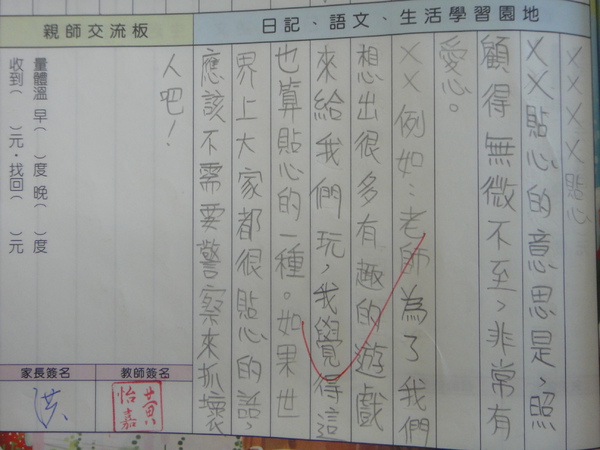 日記、語文、生活學習園地
××××貼心
××貼心的意思是,照
顧得無微不至,非常有
愛心。
××例如:老師為了我們
想出很多有趣的遊戲
來給我們玩,我覺得這
也算貼心的一種。如果世
界上大家都很貼心的話,
應該不需要警察來抓壞
人吧!
親師交流板
量體溫 早( )度 晚( )度
收到( )元・找回( )元
教師簽名
黃怡嘉
家長簽名
洪